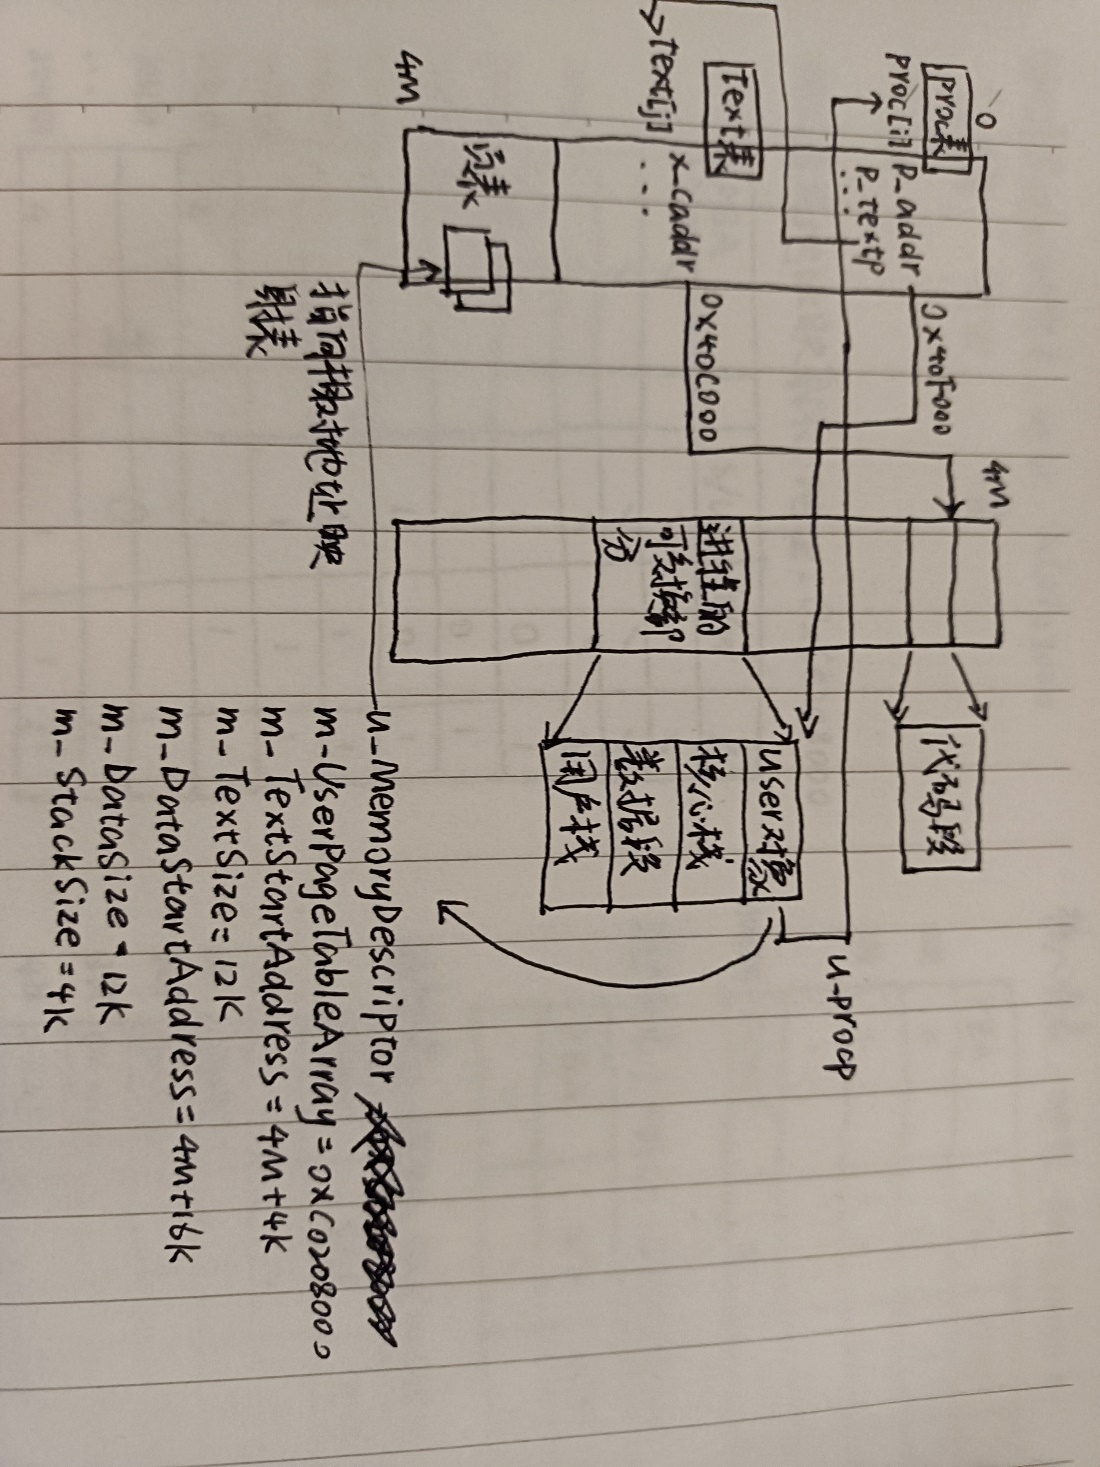 0
proc表
proc[i]
p_addr
p_textp
...
text表
text[j]
x_caddr
...
4M
页表
0x40F000
0x40C000
指向相对地址映
射表
4M
进程的
可交换部
分
代码段
user对象
核心栈
数据段
用户栈
u_procp
u_MemoryDescriptor
m_UserPageTableArray = 0xC0208000
m_TextStartAddress = 4M+4K
m_TextSize = 12K
m_DataStartAddress = 4M+16K
m_DataSize = 12K
m_StackSize = 4K